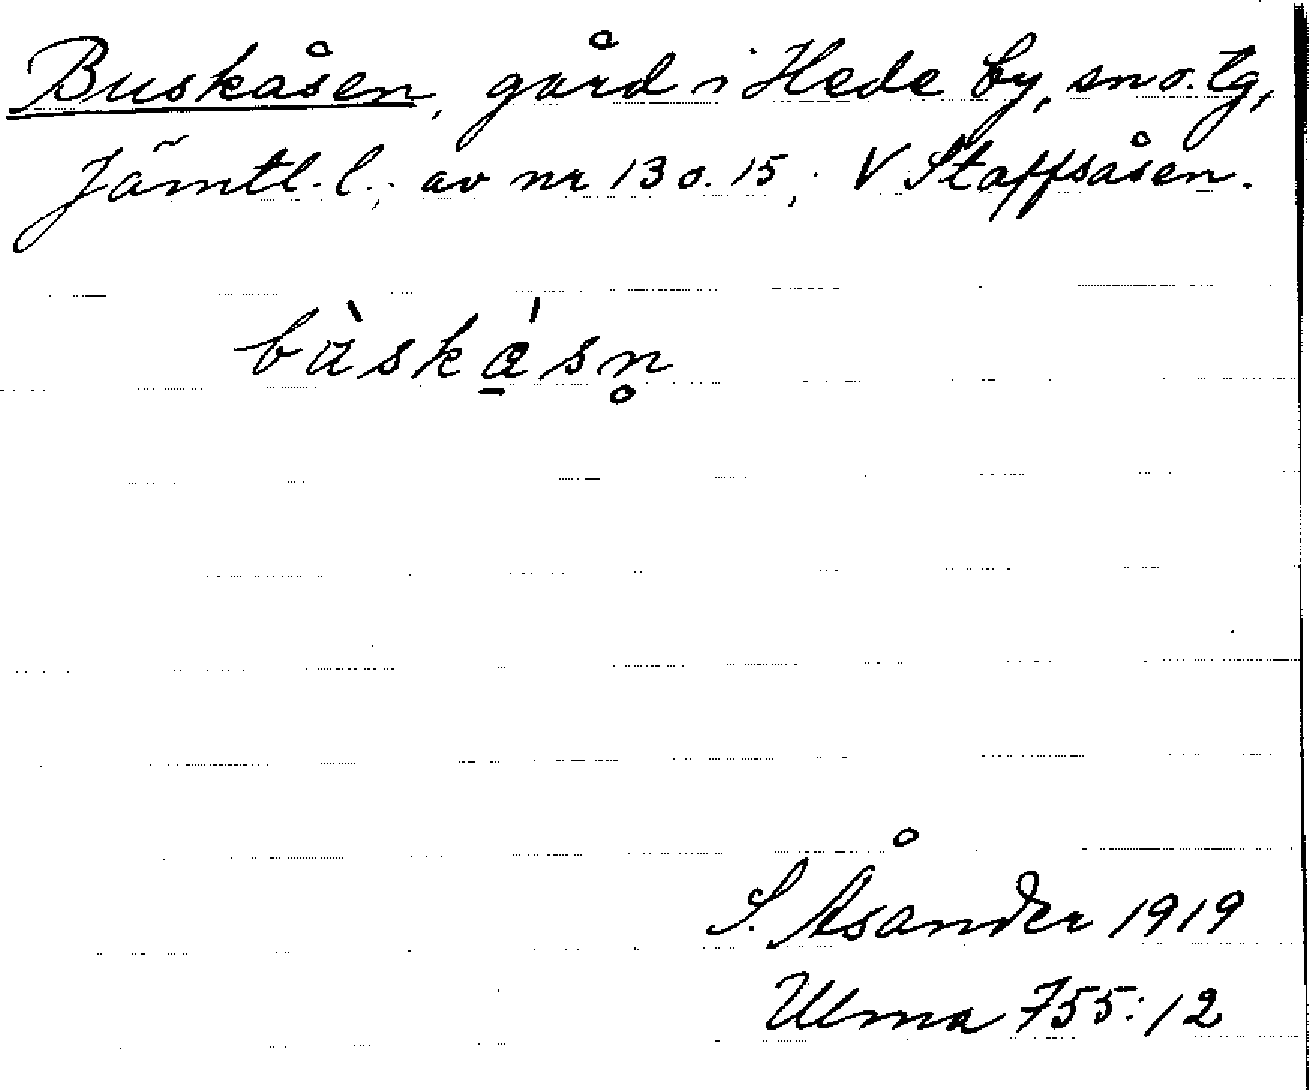 Buskåsen, gård i Hede by, sn o. tg,
Jämtl. l.; av nr 13 o. 15; V Staffsåsen.
bùská̲sn̥
S. Åsander 1919
Ulma 755:12